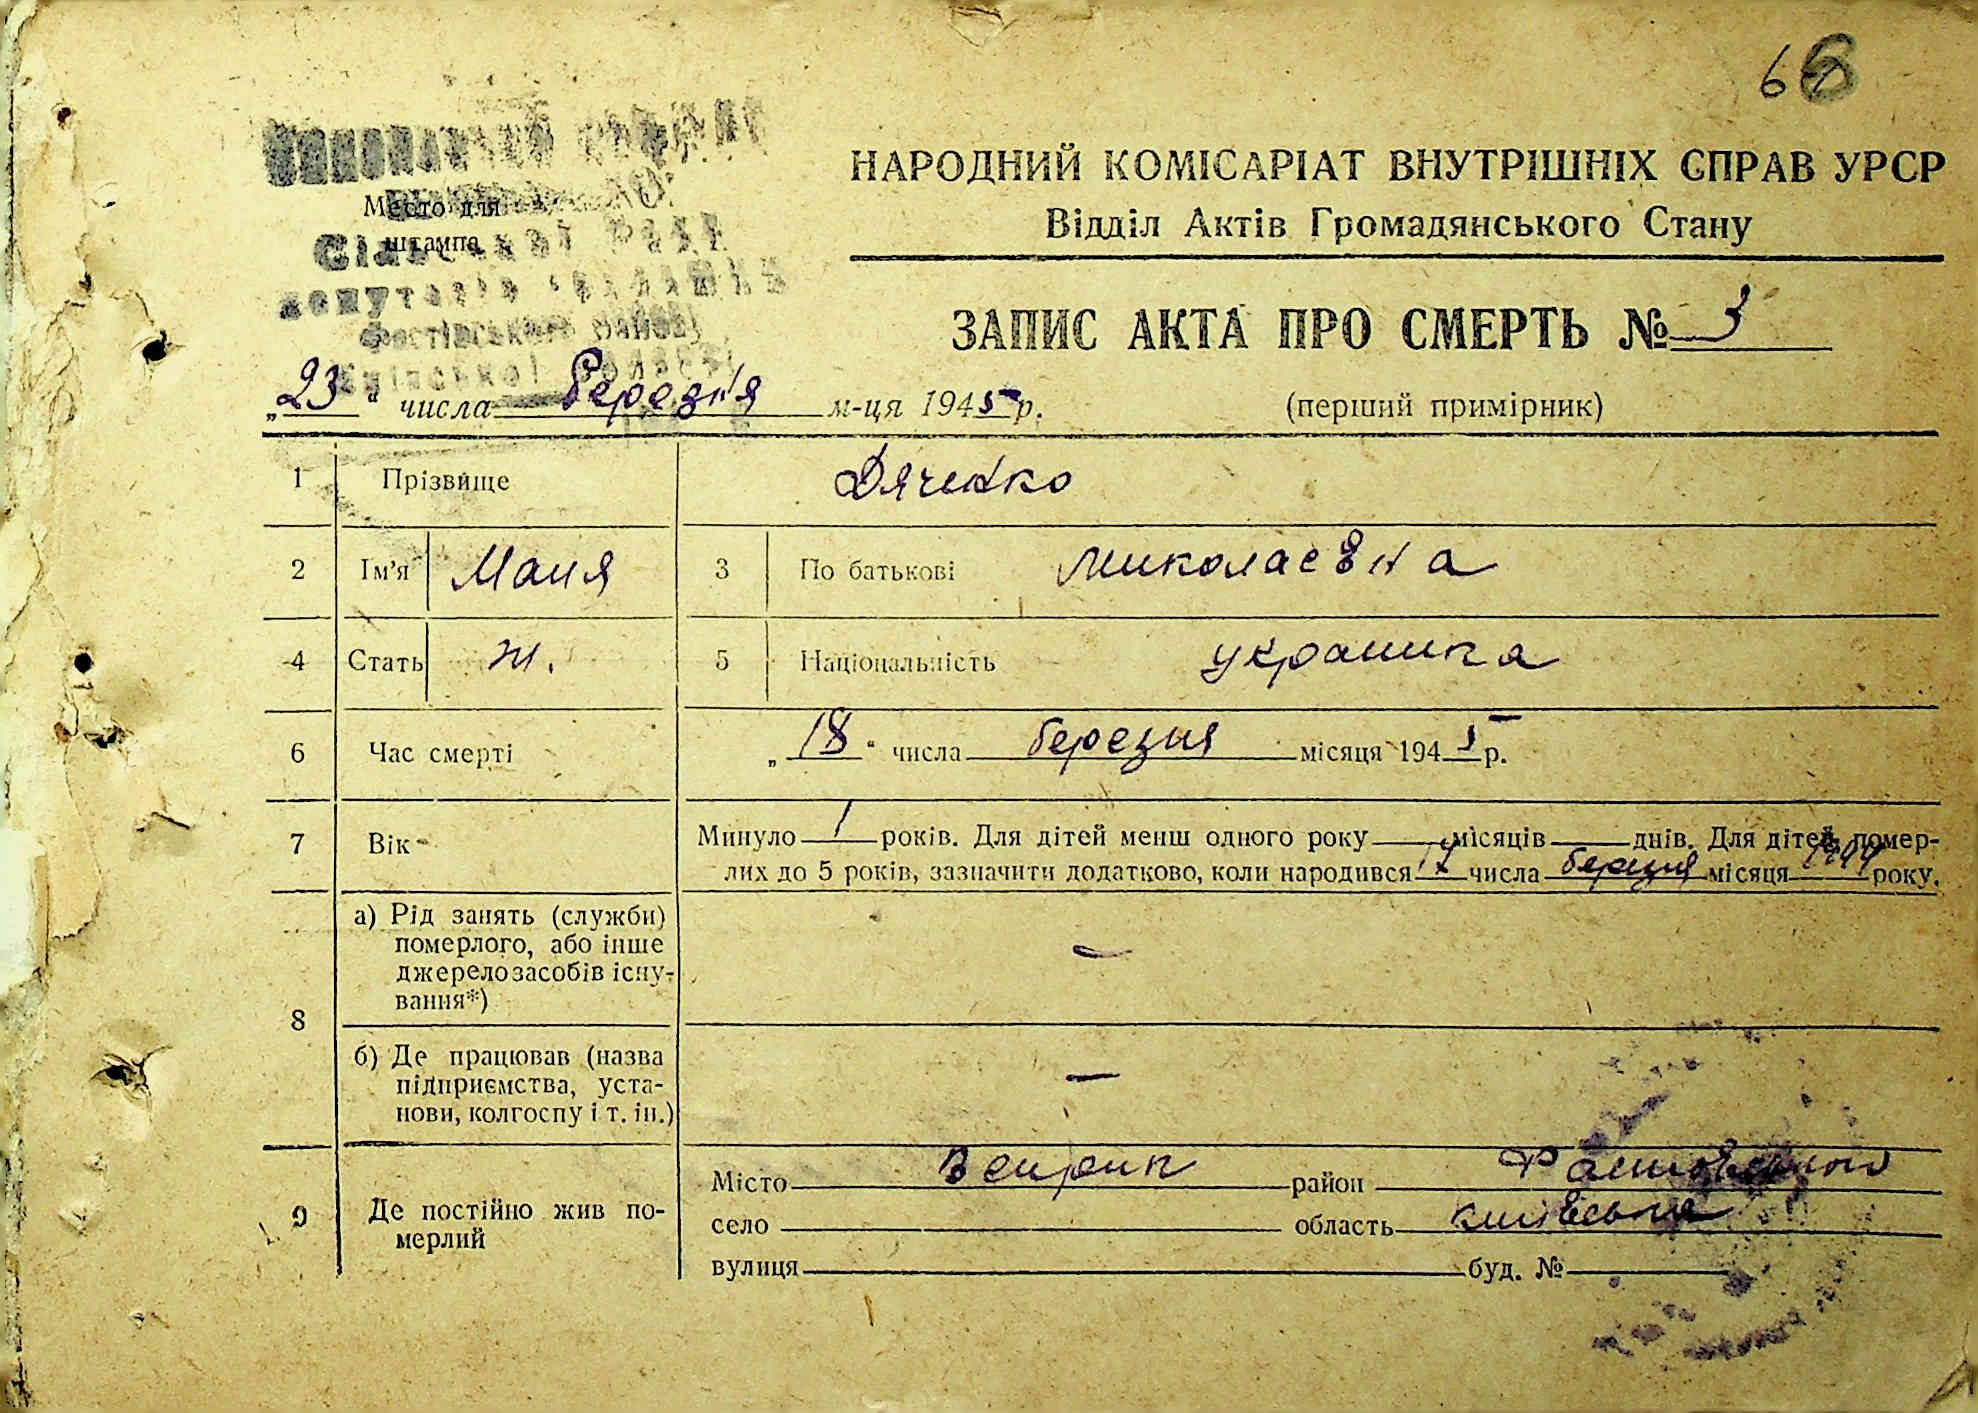 66
НАРОДНИЙ КОМІСАРІАТ ВНУТРІШНІХ СПРАВ УРСР
Відділ Актів Громадянського Стану
Место для
штампа
Сільської Ради
депутатів
Фастівського району
Київської області
ЗАПИС АКТА ПРО СМЕРТЬ № 3
„23“ числа березня м-ця 1945 р.
(перший примірник)
1 Прізвище Дяченко
2 Ім'я Маня 3 По батькові Миколаевна
4 Стать ж. 5 Національність украинка
6 Час смерті „18“ числа березня місяця 1945 р.
7 Вік Минуло 1 років. Для дітей менш одного року місяців днів. Для дітей, помер-
лих до 5 років, зазначити додатково, коли народився 17 числа березня місяця 1944 року.
8 а) Рід занять (служби)
померлого, або інше
джерело засобів існу-
вання*) —
б) Де працював (назва
підприємства, уста-
нови, колгоспу і т. ін.) —
9 Де постійно жив по-
мерлий
Місто Веприк район Фастовського
село область київська
вулиця буд. №